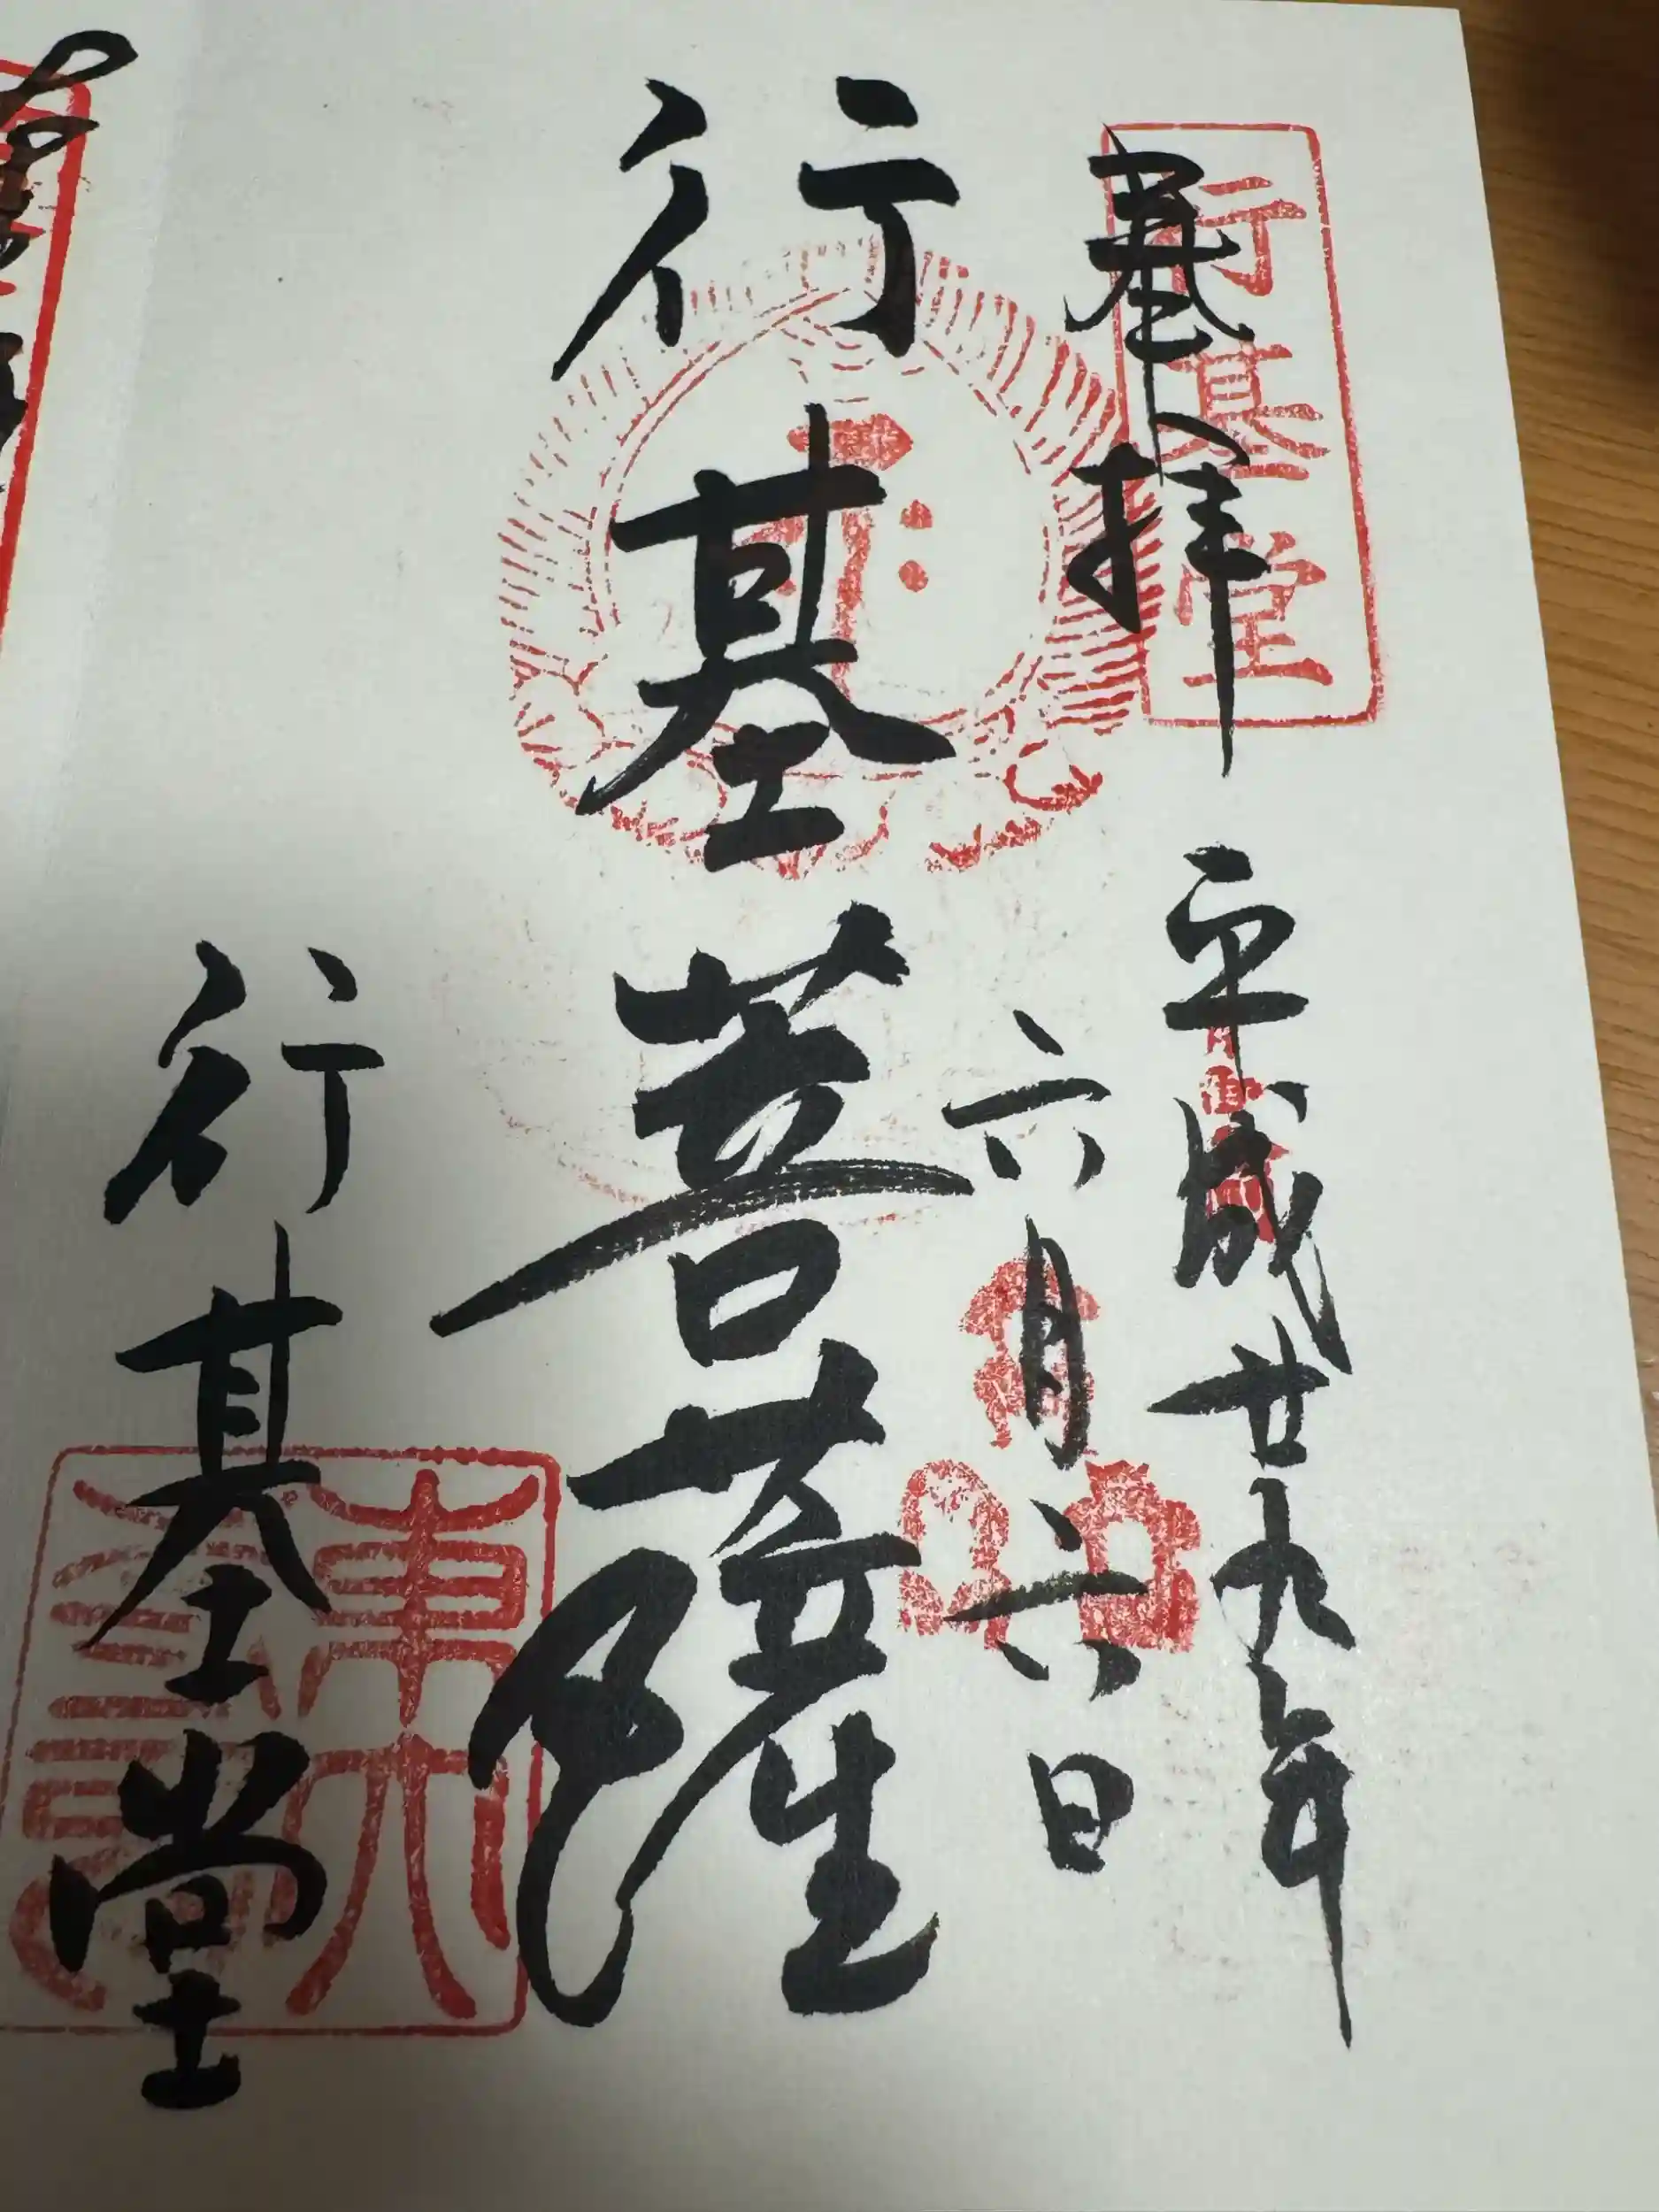 奉拝
平成廿九年
六月六日
行基菩薩
行基堂
行基堂